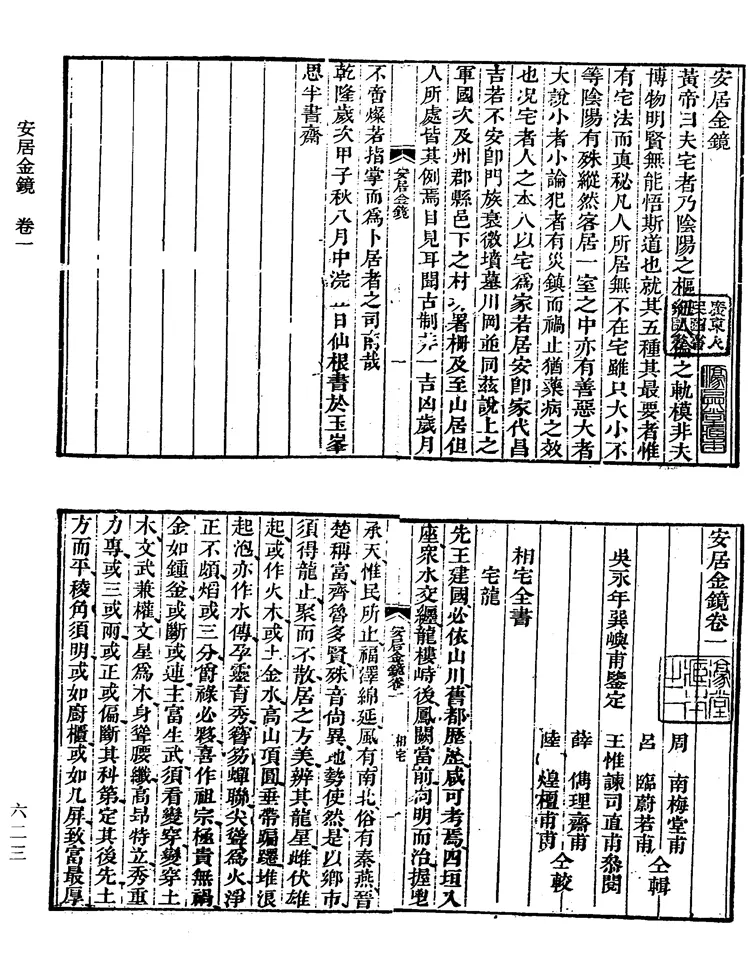 安居金鏡
黃帝曰夫宅者乃陰陽之樞紐人倫之軌模非夫
博物明賢無能悟斯道也就其五種其最要者惟
有宅法而真秘凡人所居無不在宅雖只大小不
等陰陽有殊縱然客居一室之中亦有善惡大者
大說小者小論犯者有災鎮而禍止猶藥病之效
也況宅者人之本人以宅爲家若居安卽家代昌
吉若不安卽門族衰微墳墓川岡並同茲說上之
軍國次及州郡縣邑下之村署柵及至山居但
人所處皆其例焉目見耳聞古制一吉凶歲月
安居金鏡
一
不啻燦若指掌而爲卜居者之司南哉
乾隆歲次甲子秋八月中浣日仙根書於玉峯
思半書齋
安居金鏡卷一
周南梅堂甫
呂臨蔚若甫仝輯
吳永年巽嶼甫鑒定
王惟諫司直甫叅閱
薛儁理齋甫
陸煌檀甫甫仝較
相宅全書
宅龍
先王建國必依山川舊都歷歷咸可考焉四垣入
座衆水交纏龍樓峙後鳳闕當前向明而治握
安居金鏡卷一
相宅
承天惟民所止福澤綿延風有南北俗有秦燕晉
楚稱富齊魯多賢殊音尙異地勢使然是以鄉市
須得龍止聚而不散居之方美辨其龍星雌伏雄
起或作火木或土金水高山頂圓垂帶蹁躚堆浪
起泡亦作水傳孕靈育秀聳笏蟬聯尖聳爲火淨
正不頗熖或三分爵祿必夥喜作祖宗極貴無禍
金如鍾釜或斷或連主富生武須看變穿變穿土
木文武兼權文星爲木身聳腰纖高昂特立秀重
力專或三或兩或正或偏斷其科第定其後先土
方而平稜角須明或如厨櫃或如几屏致富最厚
安居金鏡 卷一
六二三